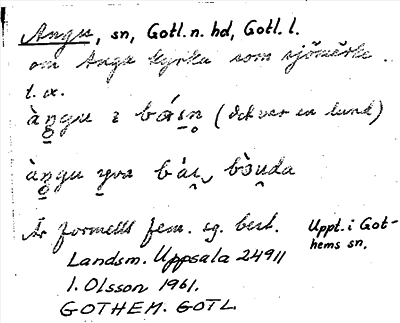 Angu, sn, Gotl. n. hd, Gotl. l.
om Anga kyrka som sjömärke.
t. ex.
àngu ɪ básn (och var en lund)
àngu yva bàɪ bòuda
Är formellt fem. sg. best.
Uppt. i Got-
hems sn.
Landsm. Uppsala 24911
I. Olsson 1961.
GOTHEM. GOTL